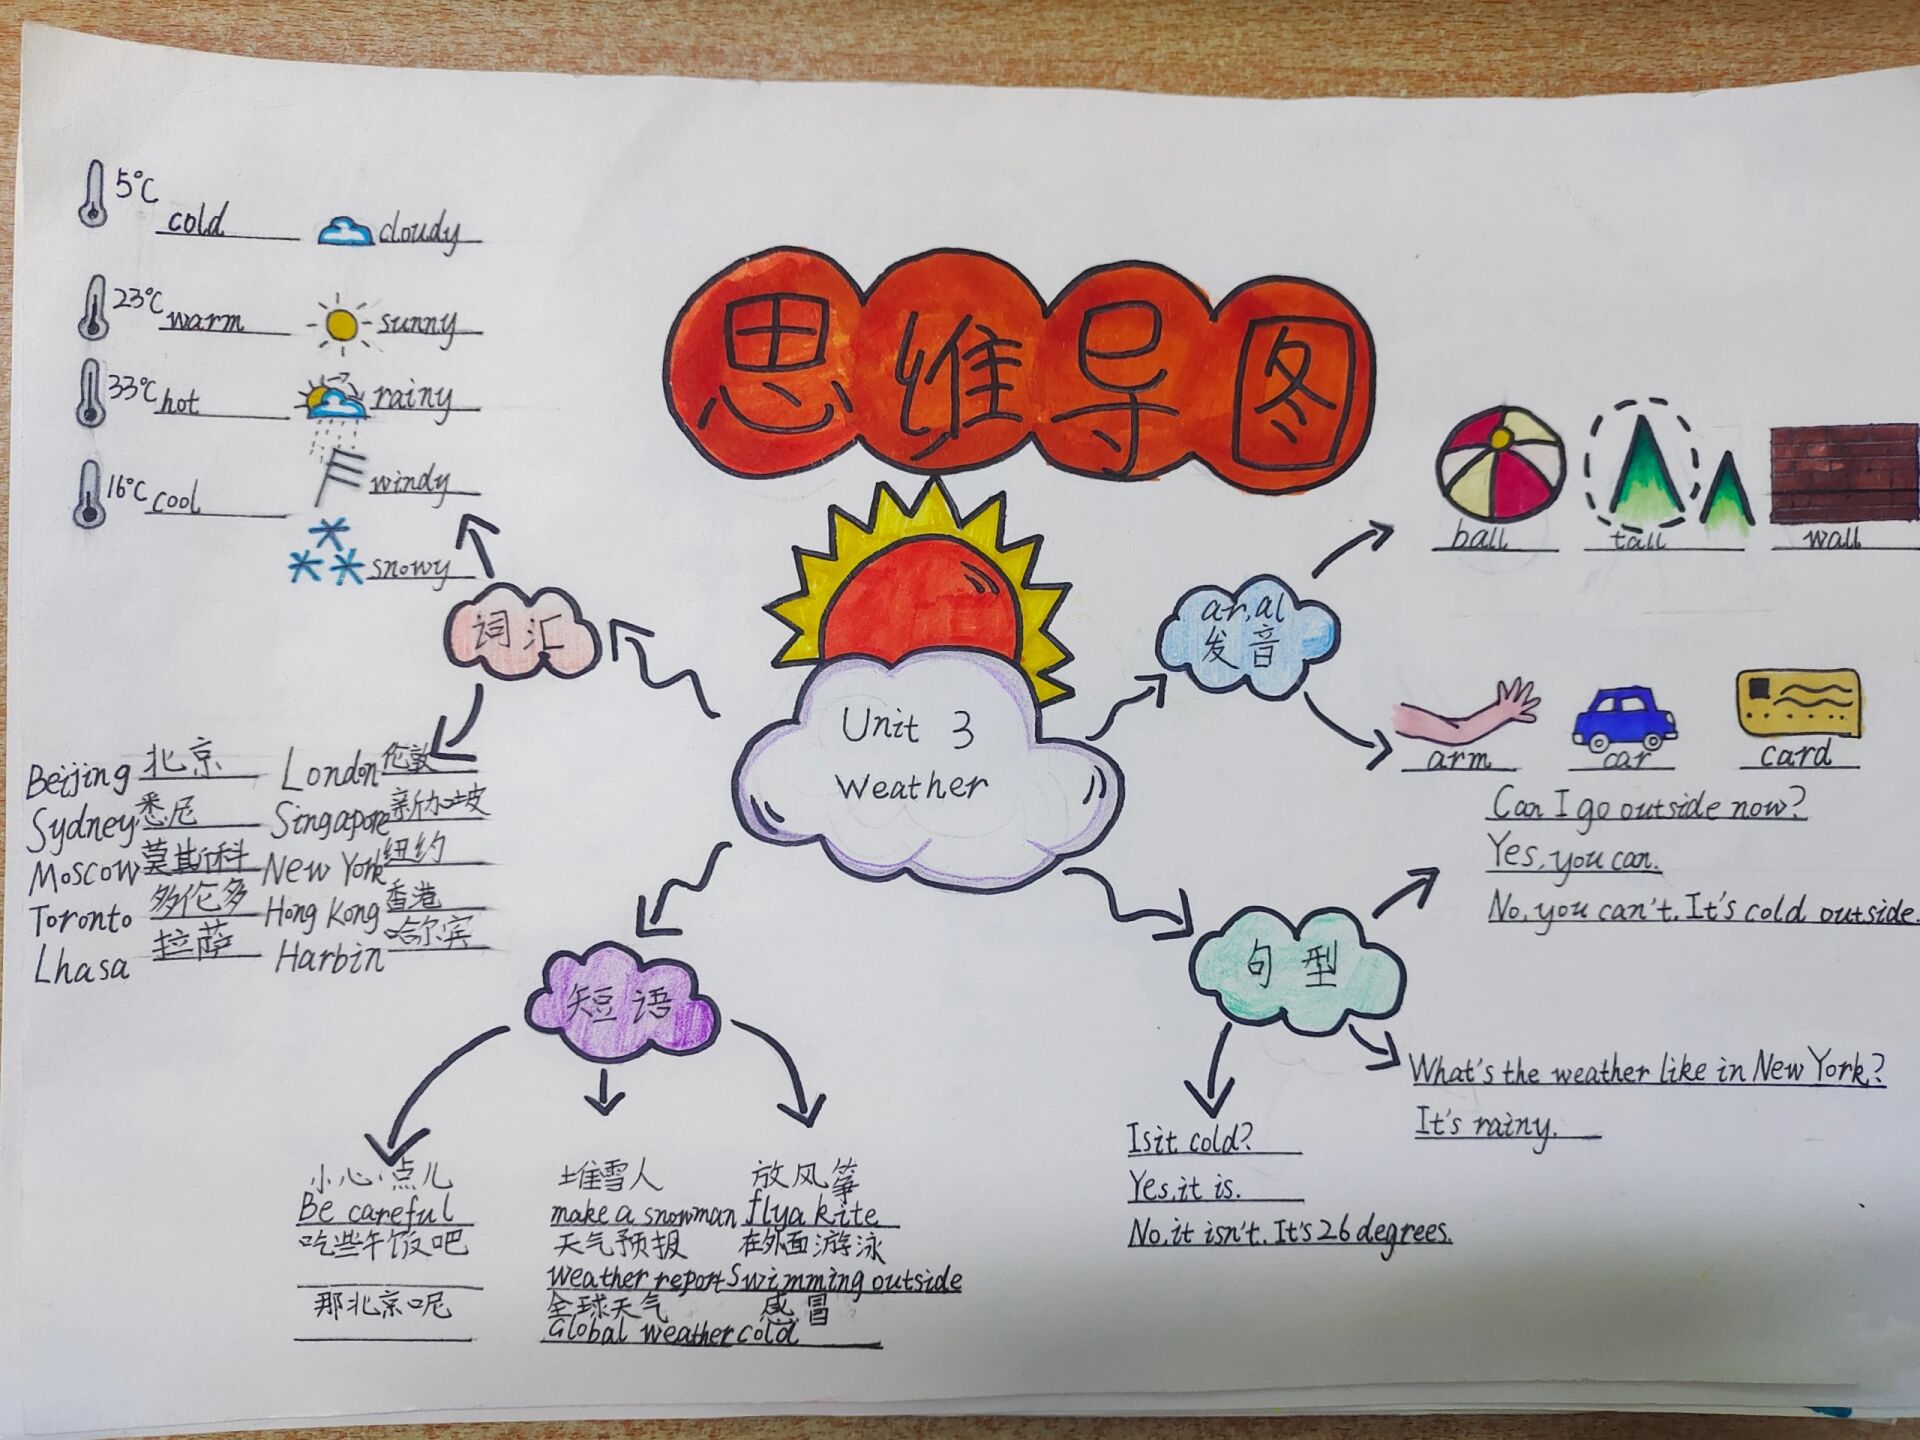 思维导图
Unit 3
Weather
词汇
5°C cold
cloudy
23°C warm
sunny
33°C hot
rainy
16°C cool
windy
snowy
Beijing 北京 London 伦敦
Sydney 悉尼 Singapore 新加坡
Moscow 莫斯科 New York 纽约
Toronto 多伦多 Hong Kong 香港
Lhasa 拉萨 Harbin 哈尔宾
短语
小心点儿
Be careful
吃些午饭吧
那北京呢
堆雪人 放风筝
make a snowman fly a kite
天气预报 在外面游泳
weather report Swimming outside
全球天气 感冒
Global weather cold
ar, al
发音
ball tall wall
arm car card
句型
Can I go outside now?
Yes, you can.
No, you can't. It's cold outside.
What's the weather like in New York?
It's rainy.
Is it cold?
Yes, it is.
No, it isn't. It's 26 degrees.